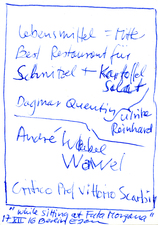 Lebensmittel = Mitte
Best Restaurant für
Schnitzel + Kartoffel
Salat
Dagmar Quentin
Ulrike
Reinhard
André
Wawel
Critico Prof Vittorio
"while sitting at Fata Morgana"
17 XII 16 Berlin